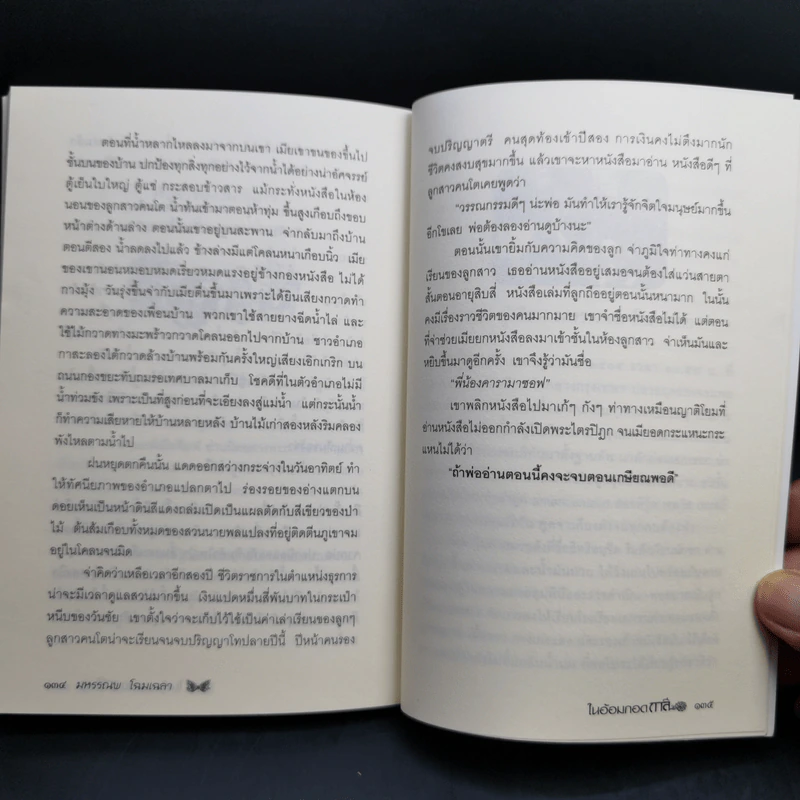 ตอนที่น้ำหลากไหลลงมาจากบนเขา เมียเขาขนของขึ้นไป
ชั้นบนของบ้าน ปกป้องทุกสิ่งทุกอย่างไว้จากน้ำได้อย่างน่าอัศจรรย์
ตู้เย็นใบใหญ่ ตู้แช่ กระสอบข้าวสาร แม้กระทั่งหนังสือในห้อง
นอนของลูกสาวคนโต น้ำทันเข้ามาตอนห้าทุ่ม ขึ้นสูงเกือบถึงขอบ
หน้าต่างด้านล่าง ตอนนั้นเขาอยู่บนสะพาน จ่ากลับมาถึงบ้าน
ตอนตีสอง น้ำลดลงไปแล้ว ข้างล่างมีแต่โคลนหนาเกือบนิ้ว เมีย
ของเขานอนหมอบหมดเรี่ยวหมดแรงอยู่ข้างกองหนังสือ ไม่ได้
กางมุ้ง วันรุ่งขึ้นจ่ากับเมียตื่นขึ้นมาเพราะได้ยินเสียงกวาดทำ
ความสะอาดของเพื่อนบ้าน พวกเขาใช้สายยางฉีดน้ำไล่ และ
ใช้ไม้กวาดทางมะพร้าวกวาดโคลนออกไปจากบ้าน ชาวอำเภอ
กาสะลองได้กวาดล้างบ้านพร้อมกันครั้งใหญ่เสียงเอิกเกริก บน
ถนนกองขยะทับถมรอรถเทศบาลมาเก็บ โชคดีที่ในตัวอำเภอไม่มี
น้ำท่วมขัง เพราะเป็นที่สูงก่อนที่จะเอียงลงสู่แม่น้ำ แต่กระนั้นน้ำ
ก็ทำความเสียหายให้บ้านหลายหลัง บ้านไม้เก่าสองหลังริมคลอง
พังไหลตามน้ำไป
ฝนหยุดตกคืนนั้น แดดออกสว่างกระจ่างในวันอาทิตย์ ทำ
ให้ทัศนียภาพของอำเภอแปลกตาไป ร่องรอยของอ่างแตกบน
ดอยเห็นเป็นหน้าดินสีแดงถล่มเปิดเป็นแผลตัดกับสีเขียวของป่า
ไม้ ต้นส้มเกือบทั้งหมดของสวนนายพลแปลงที่อยู่ติดตีนภูเขาจม
อยู่ในโคลนจนมิด
จ่าคิดว่าเหลือเวลาอีกสองปี ชีวิตราชการในตำแหน่งธุรการ
น่าจะมีเวลาดูแลสวนมากขึ้น เงินแปดหมื่นสี่พันบาทในกระเป๋า
หนีบของวันชัย เขาตั้งใจว่าจะเก็บไว้ใช้เป็นค่าเล่าเรียนของลูกๆ
ลูกสาวคนโตน่าจะเรียนจนจบปริญญาโทปลายปีนี้ ปีหน้าคนรอง
๑๓๔ มหรรณพ โฉมเฉลา
จบปริญญาตรี คนสุดท้องเข้าปีสอง การเงินคงไม่ตึงมากนัก
ชีวิตคงสงบสุขมากขึ้น แล้วเขาจะหาหนังสือมาอ่าน หนังสือดีๆ ที่
ลูกสาวคนโตเคยพูดว่า
"วรรณกรรมดีๆ น่ะพ่อ มันทำให้เรารู้จักจิตใจมนุษย์มากขึ้น
อีกโขเลย พ่อต้องลองอ่านดูบ้างนะ"
ตอนนั้นเขายิ้มกับความคิดของลูก จ่าภูมิใจท่าทางคงแก่
เรียนของลูกสาว เธออ่านหนังสืออยู่เสมอจนต้องใส่แว่นสายตา
สั้นตอนอายุสิบสี่ หนังสือเล่มที่ลูกถืออยู่ตอนนั้นหนามาก ในนั้น
คงมีเรื่องราวชีวิตของคนมากมาย เขาจำชื่อหนังสือไม่ได้ แต่ตอน
ที่จ่าช่วยเมียยกหนังสือลงมาเข้าชั้นในห้องลูกสาว จ่าเห็นมันและ
หยิบขึ้นมาดูอีกครั้ง เขาจึงรู้ว่ามันชื่อ
"พี่น้องคารามาซอฟ"
เขาพลิกหนังสือไปมาเก้ๆ กังๆ ท่าทางเหมือนญาติโยมที่
อ่านหนังสือไม่ออกกำลังเปิดพระไตรปิฎก จนเมียอดกระแหนะกระ
แหนไม่ได้ว่า
"ถ้าพ่ออ่านตอนนี้คงจะจบตอนเกษียณพอดี"
ในอ้อมกอดกาลี ๑๓๕